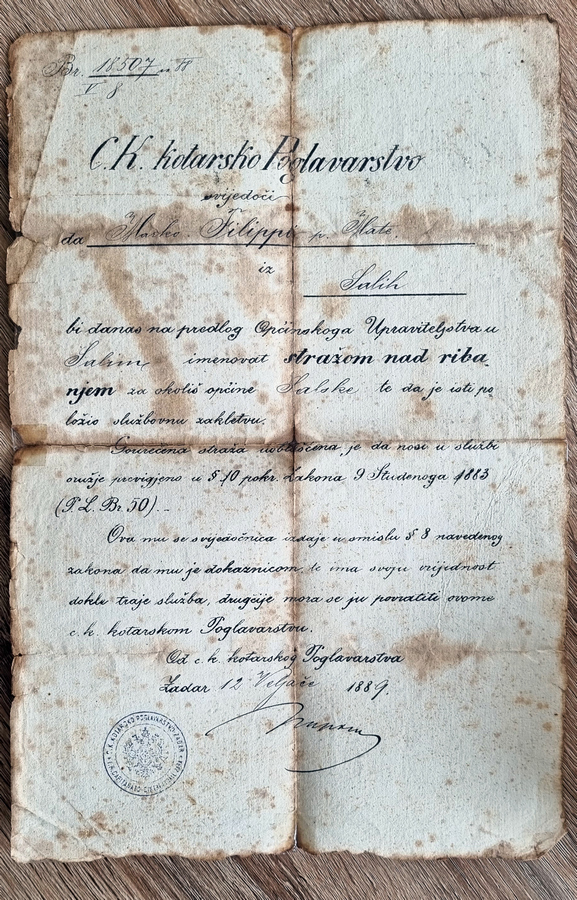 Br. 18.507 
V 8
C.K. kotarsko Poglavarstvo
svijedoči
da Marko Filippi p. Mate.
iz
Salih
bi danas na predlog Općinskoga Upraviteljstva u
Salima, imenovat stražom nad riba
njem za okoliš općine Salske, te da je isti po
ložio službovnu zakletvu.
Gorirečena straža uvlašćena je da nosi u službi
oružje previgjeno u § 10 pokr. Zakona 9 Studenoga 1883
(P. L. Br. 50).
Ova mu se svjedočnica izdaje u smislu § 8 navedenog
zakona da mu je dokaznicom, te ima svoju vrijednost
dokle traje služba, drugčije mora se ju povratiti ovome
c. k. kotarskom Poglavarstvu.
Od c. k. kotarskog Poglavarstva
Zadar 12 Veljače 1889.
C. K. KOTARSKO POGLAVARSTVO ZADAR